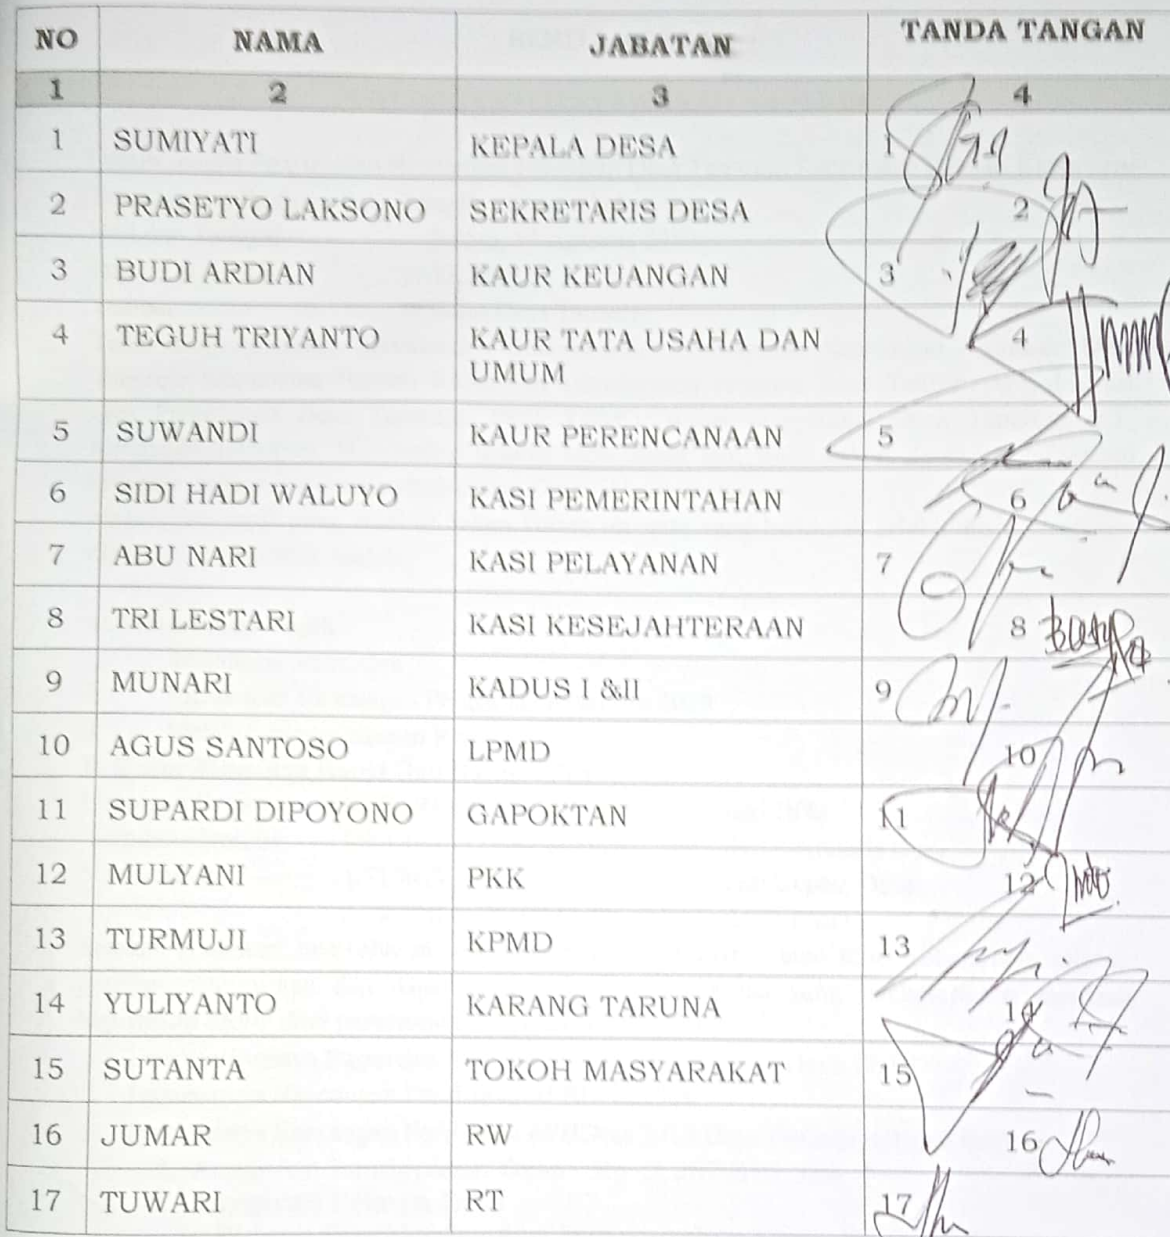 NO NAMA JABATAN TANDA TANGAN
1 2 3 4
1 SUMIYATI KEPALA DESA 1
2 PRASETYO LAKSONO SEKRETARIS DESA 2
3 BUDI ARDIAN KAUR KEUANGAN 3
4 TEGUH TRIYANTO KAUR TATA USAHA DAN 4
UMUM
5 SUWANDI KAUR PERENCANAAN 5
6 SIDI HADI WALUYO KASI PEMERINTAHAN 6
7 ABU NARI KASI PELAYANAN 7
8 TRI LESTARI KASI KESEJAHTERAAN 8
9 MUNARI KADUS I &II 9
10 AGUS SANTOSO LPMD 10
11 SUPARDI DIPOYONO GAPOKTAN 11
12 MULYANI PKK 12
13 TURMUJI KPMD 13
14 YULIYANTO KARANG TARUNA 14
15 SUTANTA TOKOH MASYARAKAT 15
16 JUMAR RW 16
17 TUWARI RT 17